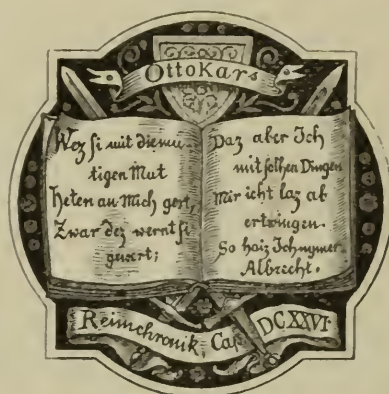 Ottokars
Wez si mit diemu-
tigen Mut
heten an Mich gert,
Zwar dez wernt si
gewert;
Daz aber Ich
mit solhen Dingen
Mir icht laz ab
ertwingen.
So haiz Ich nymer
Albrecht.
Reimchronik, Cap. DCXXVI.